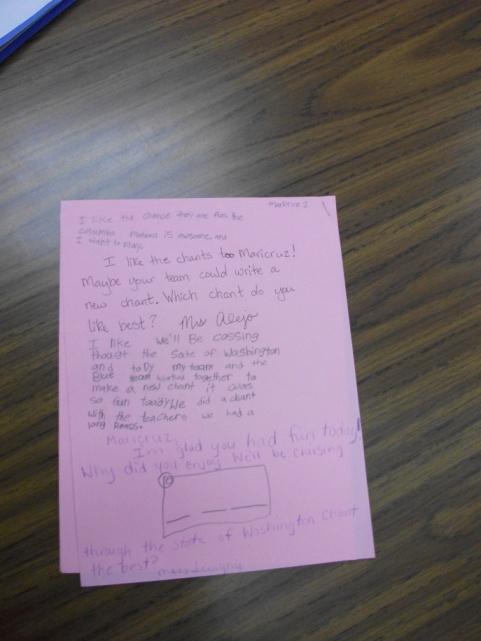 Maricruz Z
I like the chance they are fun the
Columbia Plateau is awesome and
I want to Play
I like the chants too Maricruz!
Maybe your team could write a
new chant. Which chant do you
like best? Mrs Alejo
I like We'll Be cassing
thoagt the Sate of Washington
and toDy my team and the
Blue team worked together to
make a new chant it was
so fun today We did a chant
with the teachers we had a
long Recess.
Maricruz,
I'm glad you had fun today!
Why did you enjoy We'll be cruising
through the state of Washington Chant
the best?